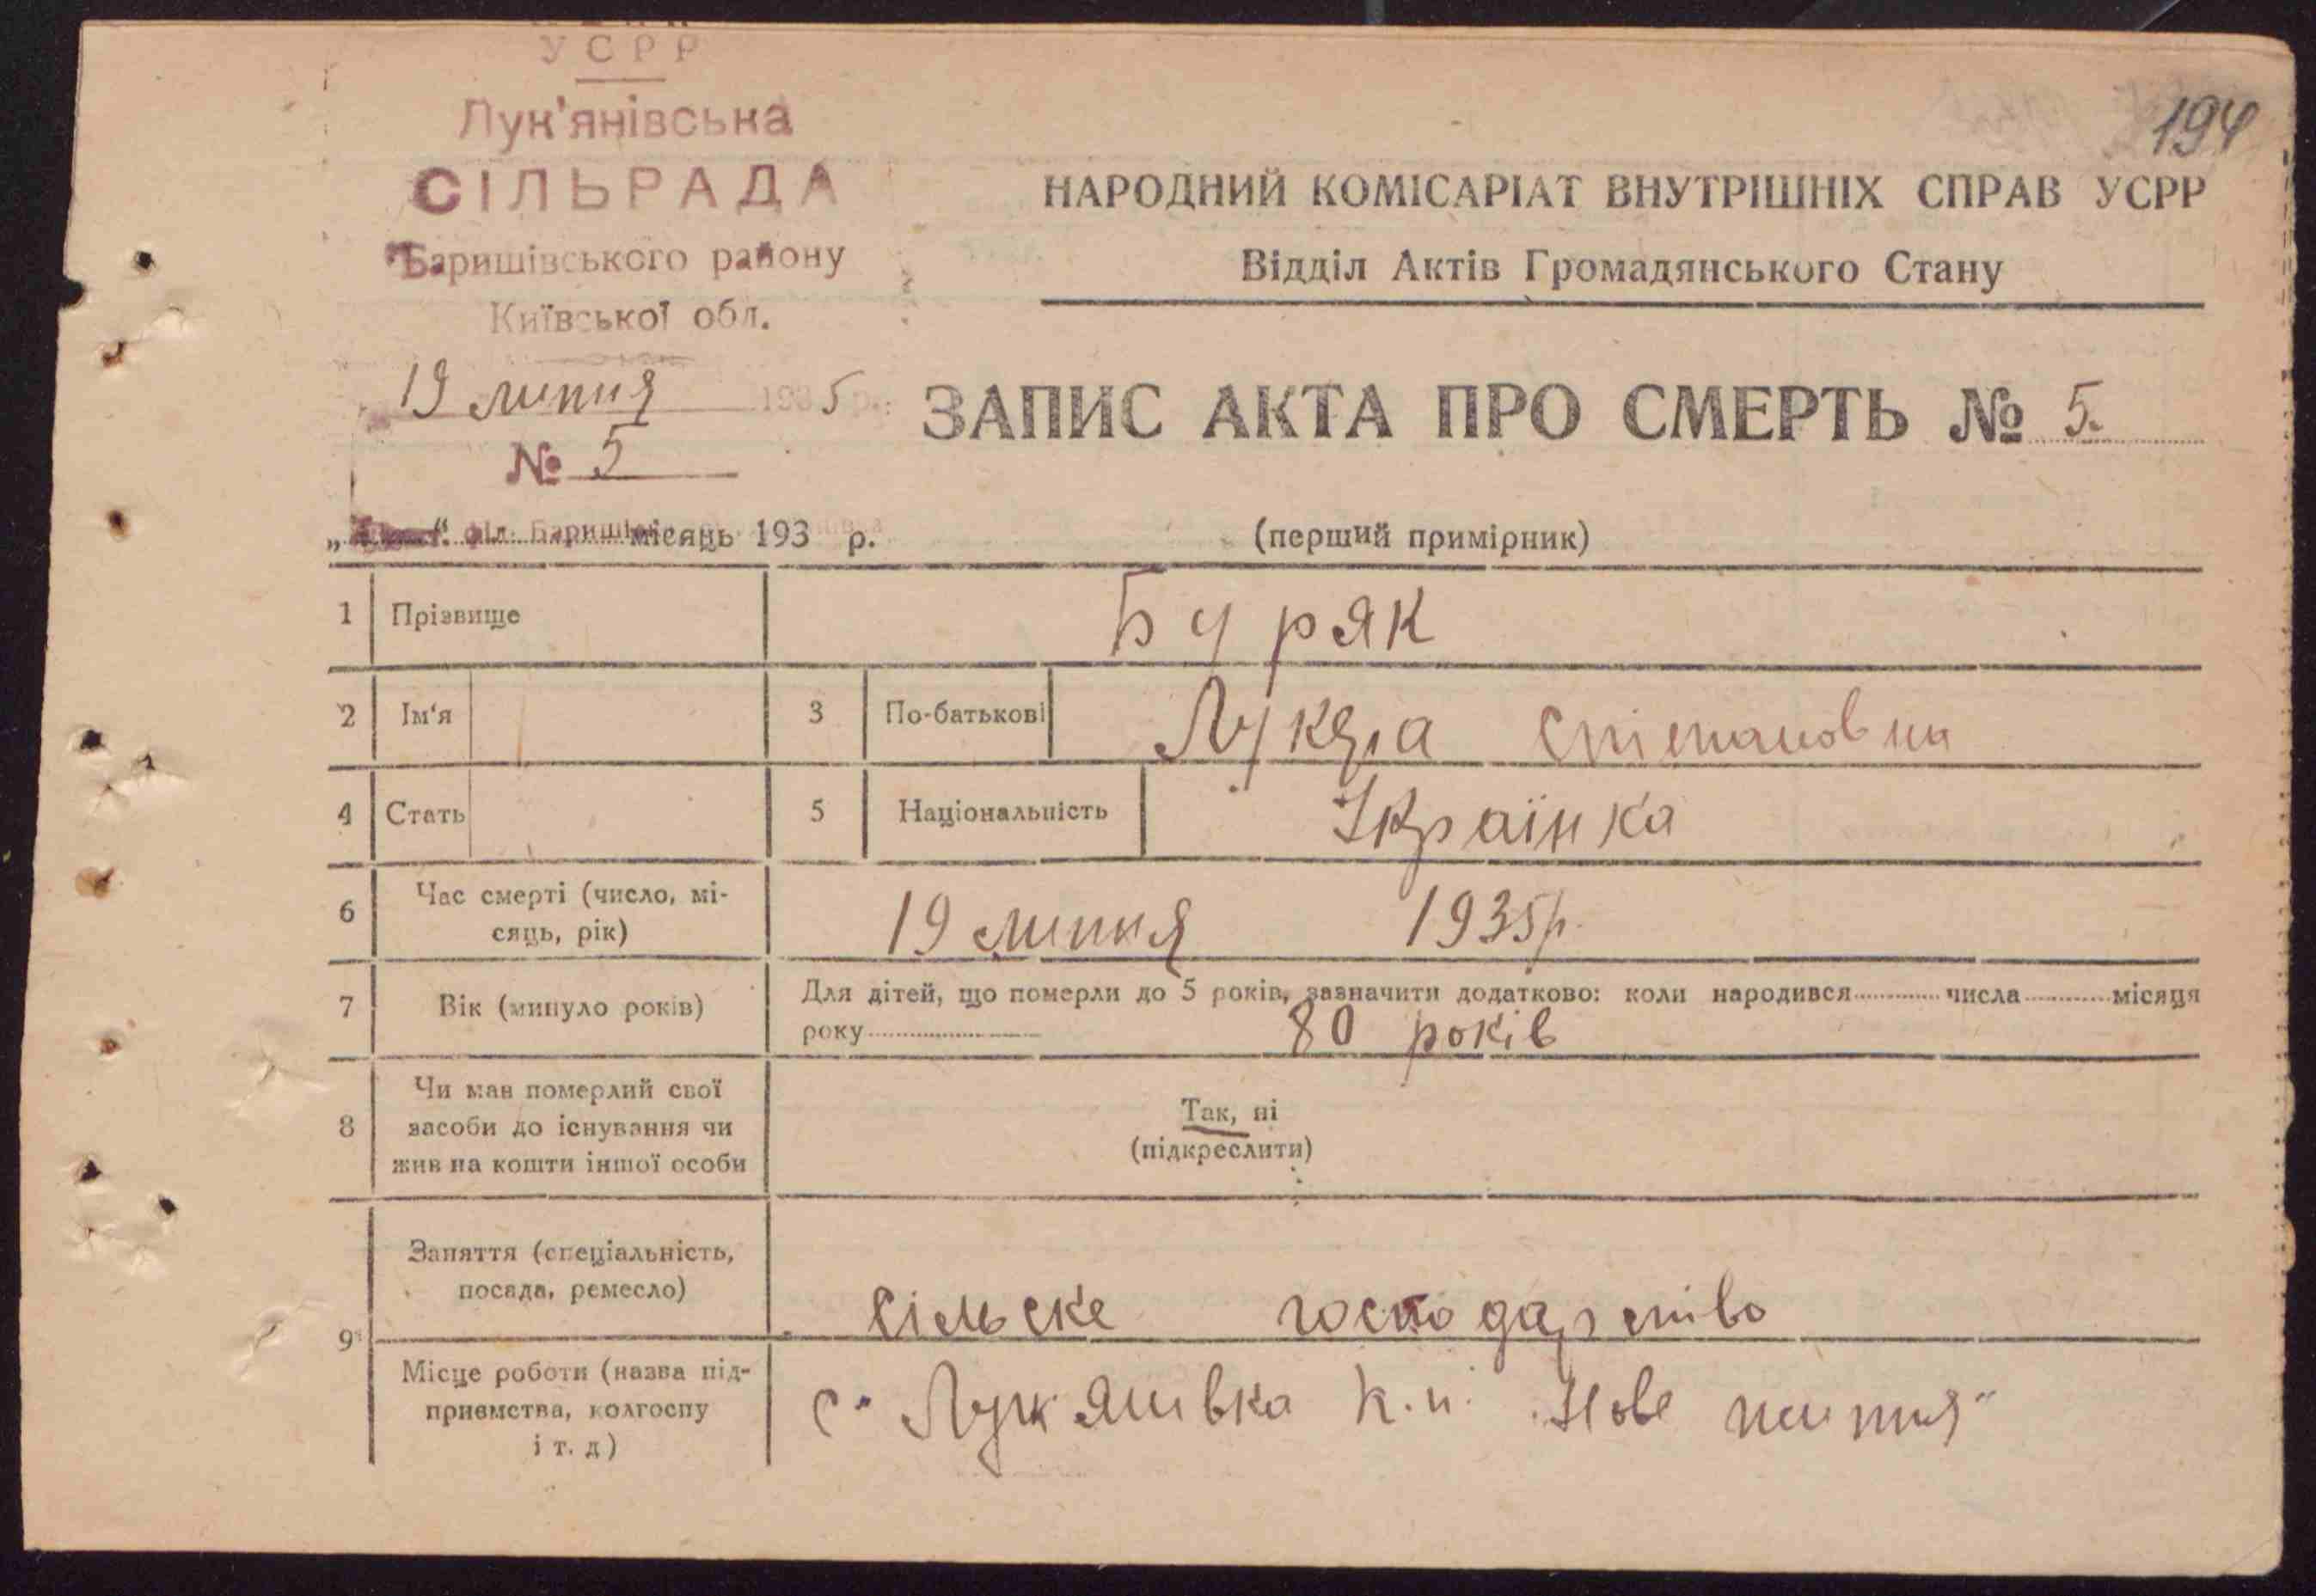 УСРР
194
Лук'янівська
СІЛЬРАДА
Баришівського району
Київської обл.
НАРОДНИЙ КОМІСАРІАТ ВНУТРІШНІХ СПРАВ УСРР
Відділ Актів Громадянського Стану
19 липня 1935 р.
№ 5
ЗАПИС АКТА ПРО СМЕРТЬ № 5.
„ “ місяць 193 р.
(перший примірник)
1 Прізвище Буряк
2 Ім'я 3 По-батькові Лукера Степановна
4 Стать 5 Національність Українка
6 Час смерті (число, мі-
сяць, рік) 19 липня 1935р.
7 Вік (минуло років) Для дітей, що померли до 5 років, зазначити додатково: коли народився числа місяця
року 80 років
8 Чи мав померлий свої
засоби до існування чи
жив на кошти іншої особи
Так, ні
(підкреслити)
9 Заняття (спеціальність,
посада, ремесло) сільске господарство
Місце роботи (назва під-
приємства, колгоспу
і т. д) с. Лукянивка к.п. „Нове життя"